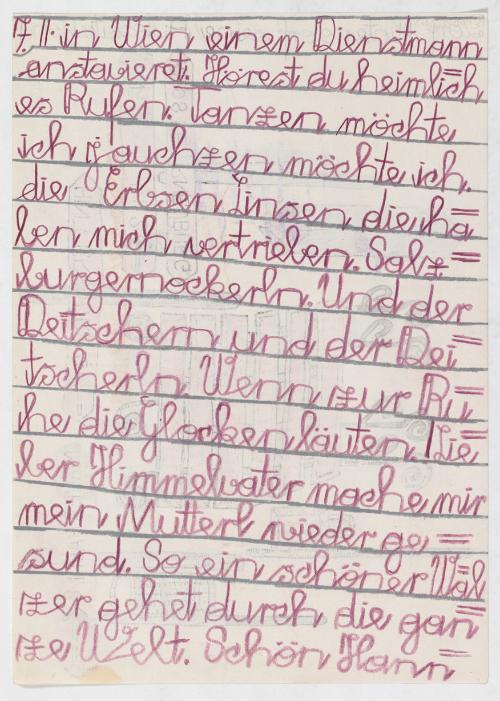 7. 11. in Wien einem Dienstmann
anstavieret. Hörest du heimlich=
es Rufen. Tanzen möchte
ich jauchzen möchte ich.
die Erbsen Linsen die ha=
ben mich vertrieben. Salz=
burgernockerln. Und der
Deitschern und der Dei=
tscherln. Wenn zur Ru=
he die Glocken läuten. Lie=
ber Himmelvater mache mir
mein Mutterl wieder ge=
sund. So ein schöner Wal=
zer gehet durch die gan=
ze Welt. Schön Hann=